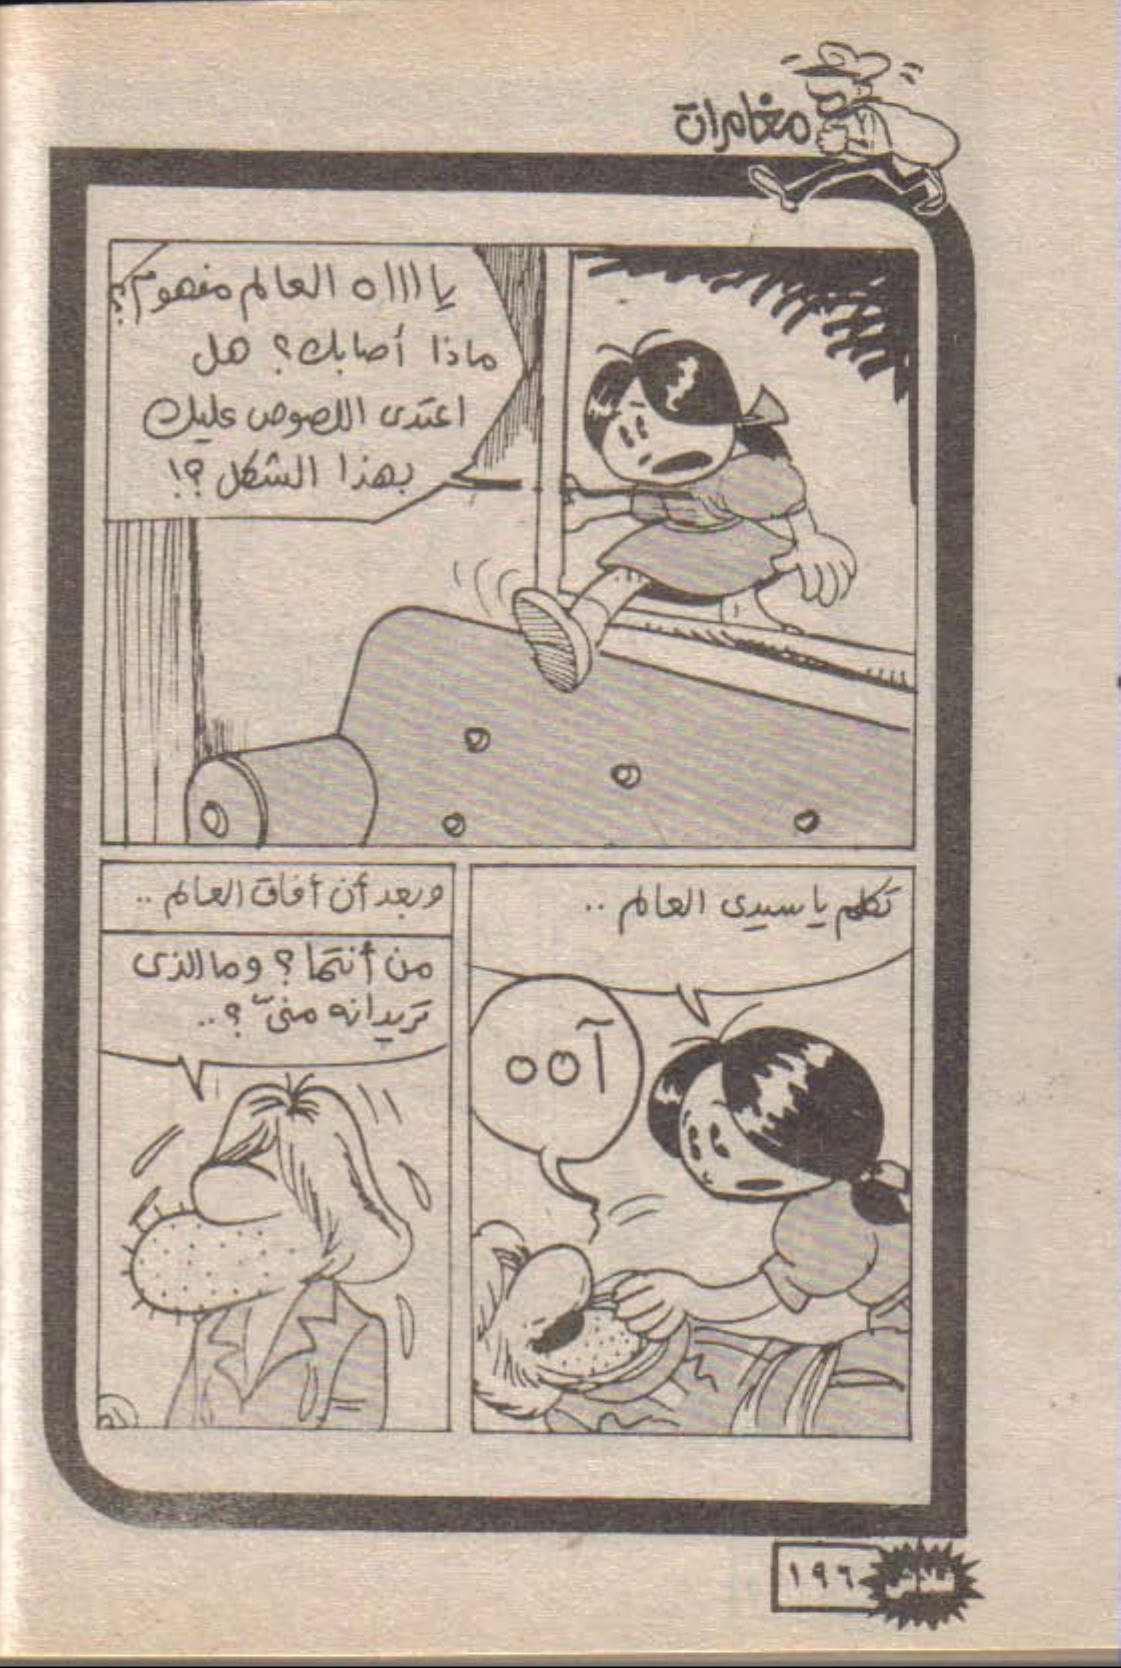 مغامرات
ياااااه العالم مفهوم؟
ماذا أصابك؟ هل
اعتدى اللصوص عليك
بهذا الشكل؟!
تكلم يا سيدى العالم ..
آهه
وبعد أن أفاق العالم ..
من أنتما؟ وما الذى
تريدانه منىّ؟..
١٩٦